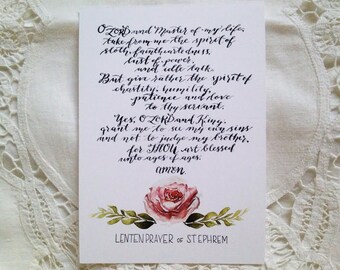 O LORD and Master of my life,
take from me the spirit of
sloth, faintheartedness,
lust of power,
and idle talk.
But give rather the spirit of
chastity, humility,
patience and love
to thy servant.
Yes, O LORD and King,
grant me to see my own sins
and not to judge my brother,
for THOU art blessed
unto ages of ages.
AMEN
LENTEN PRAYER OF ST EPHREM